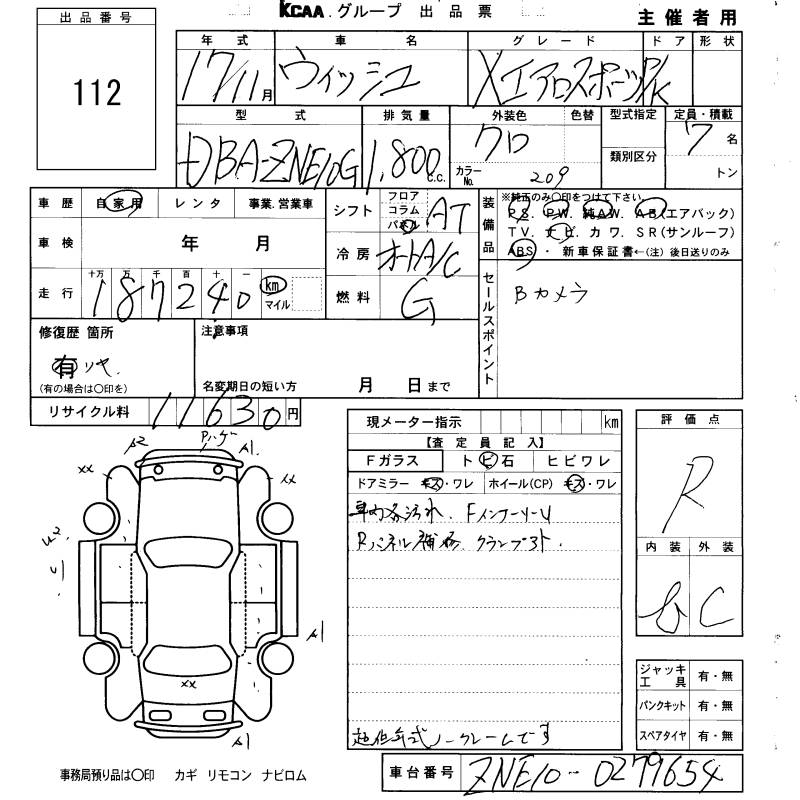 KCAA グループ 出品票
主催者用
出品番号
112
年式 車名 グレード ドア 形状
17/11月 ウィッシュ Xエアロスポーツ P/K
型式 排気量 外装色 色替 型式指定 定員・積載
DBA-ZNE10G 1,800c.c. クロ 7名
カラーNo. 209 類別区分 トン
車歴 自家用 レンタ 事業.営業車
シフト フロア コラム パネル AT
装備品 ※純正のみ〇印をつけて下さい
PS. PW. 純AW. AB(エアバック)
TV. ナビ. カワ. SR(サンルーフ)
ABS・ 新車保証書←(注) 後日送りのみ
車検 年 月
冷房 オートA/C
走行 十万 万 千 百 十 一
187240 km マイル
燃料 G
セールスポイント
Bカメラ
修復歴 箇所
有 リヤ.
(有の場合は〇印を)
注意事項
名変期日の短い方 月 日まで
リサイクル料 11630円
現メーター指示 km
【査定員記入】
Fガラス トビ石 ヒビワレ
ドアミラー キズ・ワレ ホイール(CP) キズ・ワレ
車内各汚れ. Fインナーリム
Rパネル補修. クランプ跡.
ノークレームです
評価点
R
内装 外装
C
A2 Pハゲ A1
xx xx
A1
xx
A1
ジャッキ工具 有・無
パンクキット 有・無
スペアタイヤ 有・無
事務局預り品は〇印 カギ リモコン ナビロム
車台番号 ZNE10-0279654